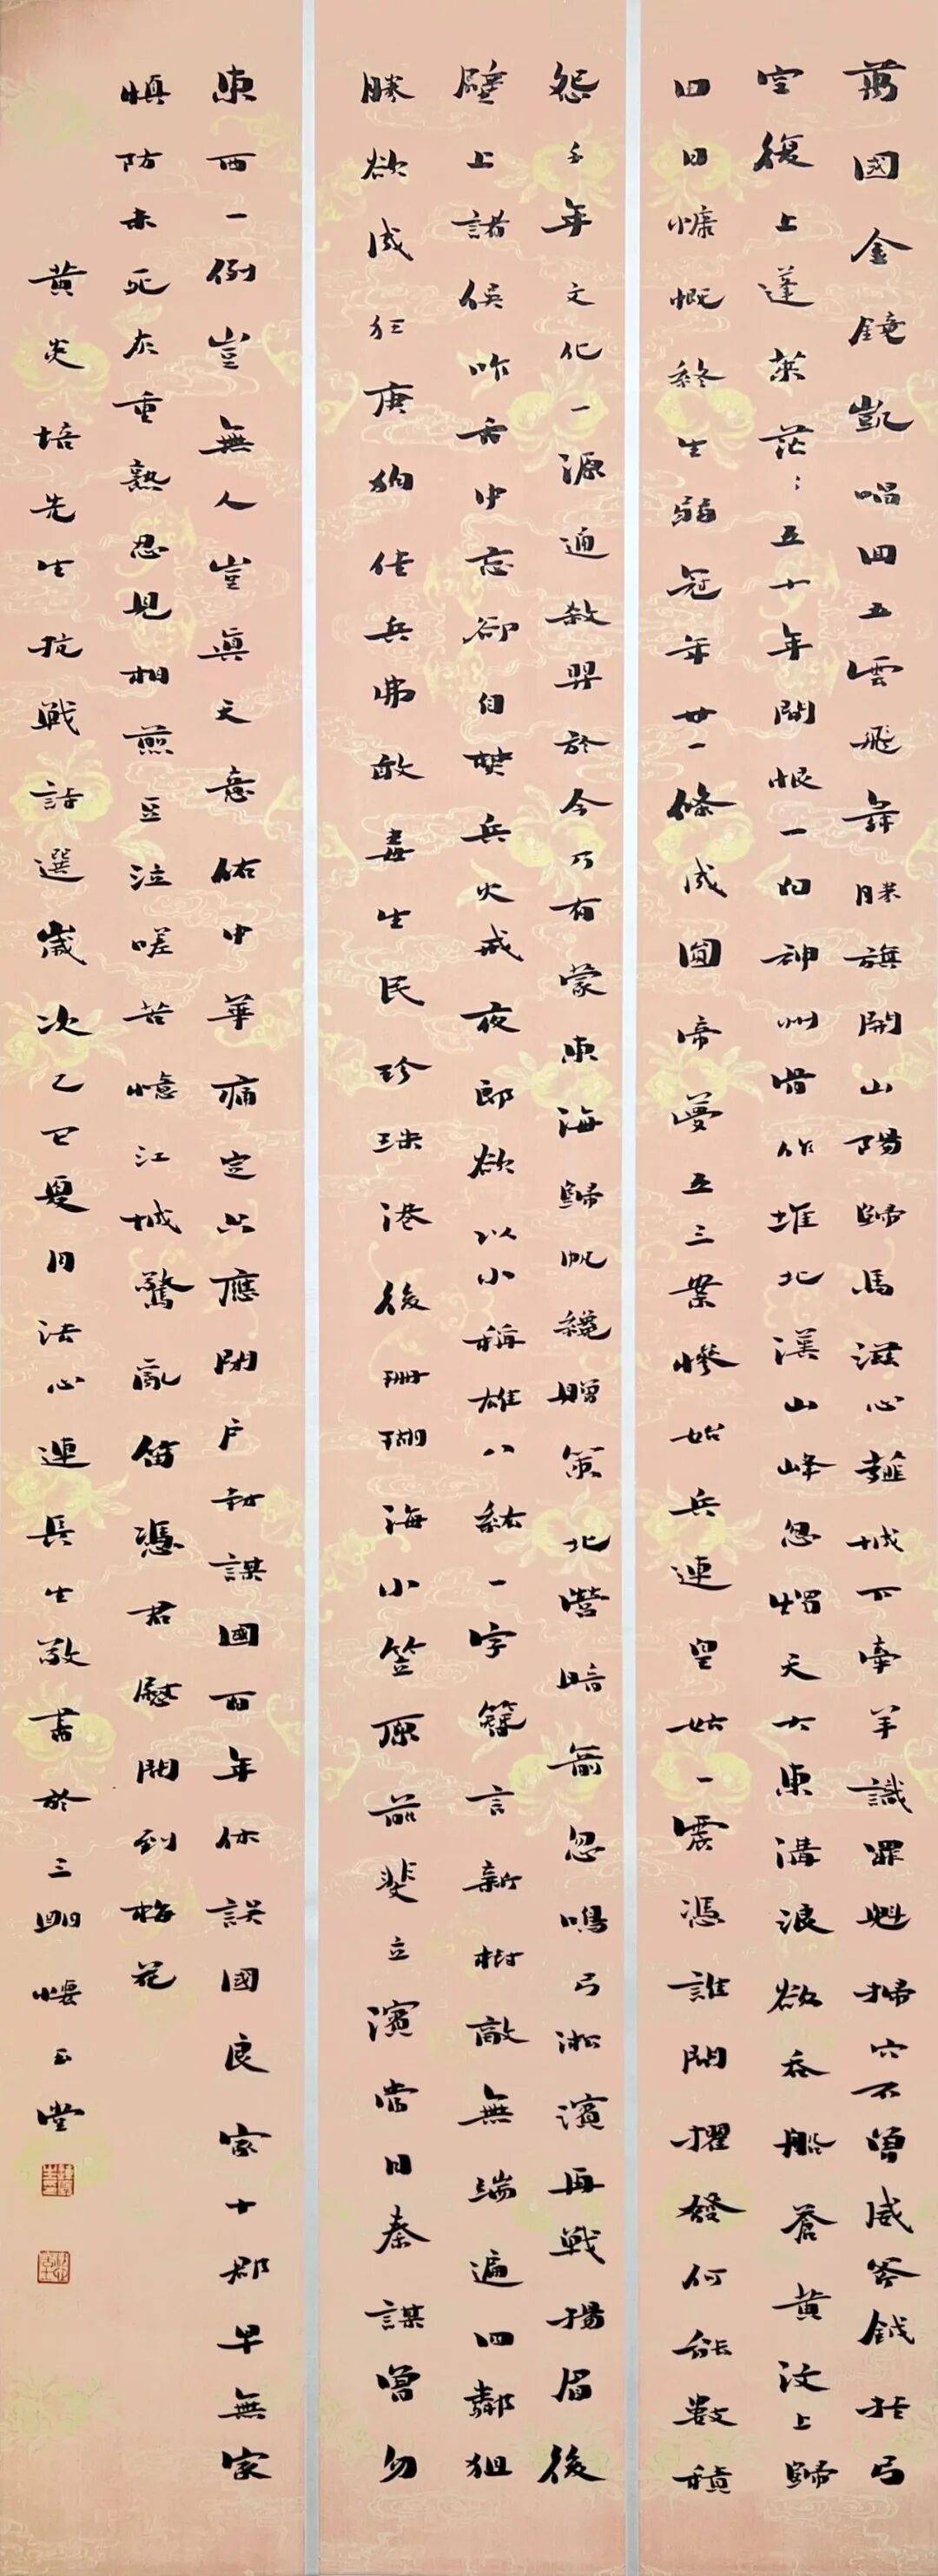 萬國金鏡凱唱回五雲飛舞勝旗開山陽歸馬滋心韙城下牽羊識罪魁掃穴不曾威斧鉞弓
空復上蓬萊茫〻五十年間恨一幻神州昔作堆北漢山峰忽熠天大東溝浪欲吞船蒼黃汶上歸
田日慷慨終生弱冠年廿一條成圓帝夢五三案慘始兵連皇姑一震憑誰問擢發何能數積
怨千年文化一源通殺羿於今乃有蒙東海歸帆纔贈策北營暗箭忽鳴弓淞濱再戰揚眉後
壁上諸侯咋舌中忘卻自焚兵火戒夜郎欲以小稱雄八紘一宇簞言新樹敵無端遍四鄰狙
勝欲成狂狗佳兵弗毒生民珍珠港後珊瑚海小笠原前斐立濱當日秦謀曾勿
東西一例豈無人豈真天意佑中華痛定只應閉户謀國百年休誤國良家十郡早無家
慎防未死灰重熱忍見相煎豆泣嗟苦憶江城驚亂笛憑君慰問到梅花
黃炎培先生抗戰詩選歲次乙巳夏月法心連長生敬書於三朙玉堂